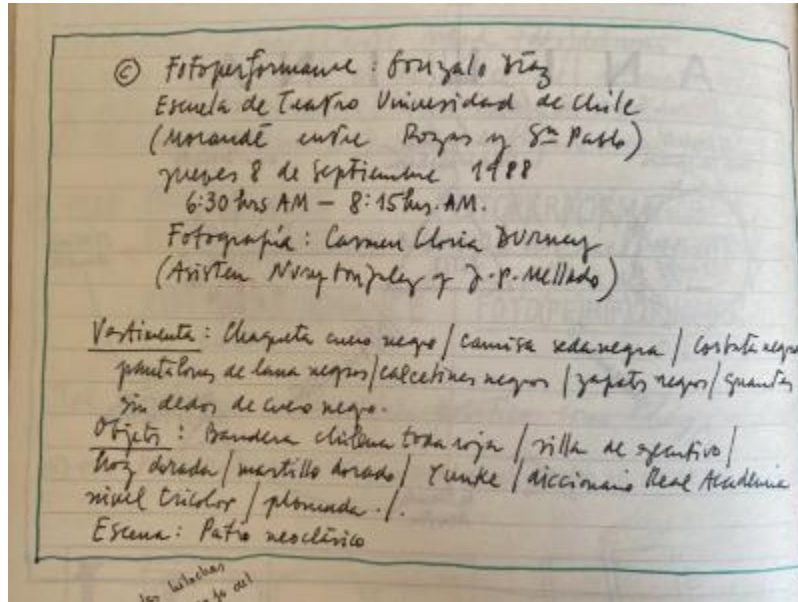 © Fotoperformance: Gonzalo Díaz
Escuela de Teatro Universidad de Chile
(Morandé entre Rozas y Sn Pablo)
jueves 8 de Septiembre 1988
6:30 hrs AM – 8:15 hrs. AM.
Fotografía: Carmen Gloria
(Asisten Nury González y J.P. Mellado)
Vestimenta: Chaqueta cuero negro / camisa seda negra / corbata negra
pantalones de lana negros / calcetines negros / zapatos negros / guantes
sin dedos de cuero negro.
Objetos: Bandera chilena toda roja / silla de ejecutivo /
hoz dorada / martillo dorado / Yunke / diccionario Real Academia
nivel tricolor / plomada ./.
Escena: Patio neoclásico
hilachas
del